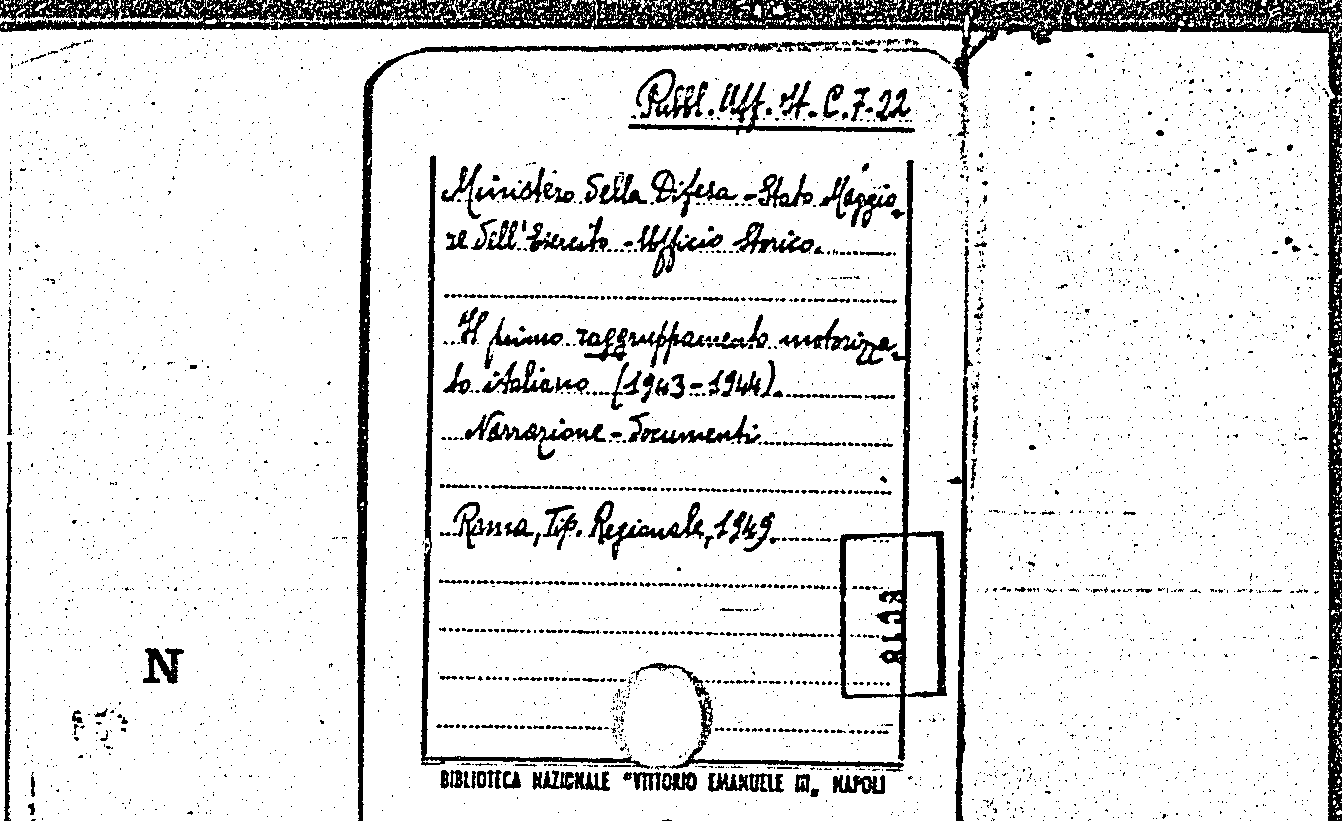 Pubbl. Uff. It. C. 7. 22
Ministero della Difesa - Stato Maggio-
re dell'Esercito - Ufficio Storico.
Il primo raggruppamento motorizza-
to italiano (1943-1944).
Narrazione - documenti
Roma, Tip. Regionale, 1949.
BIBLIOTECA NAZIONALE "VITTORIO EMANUELE III" NAPOLI
N